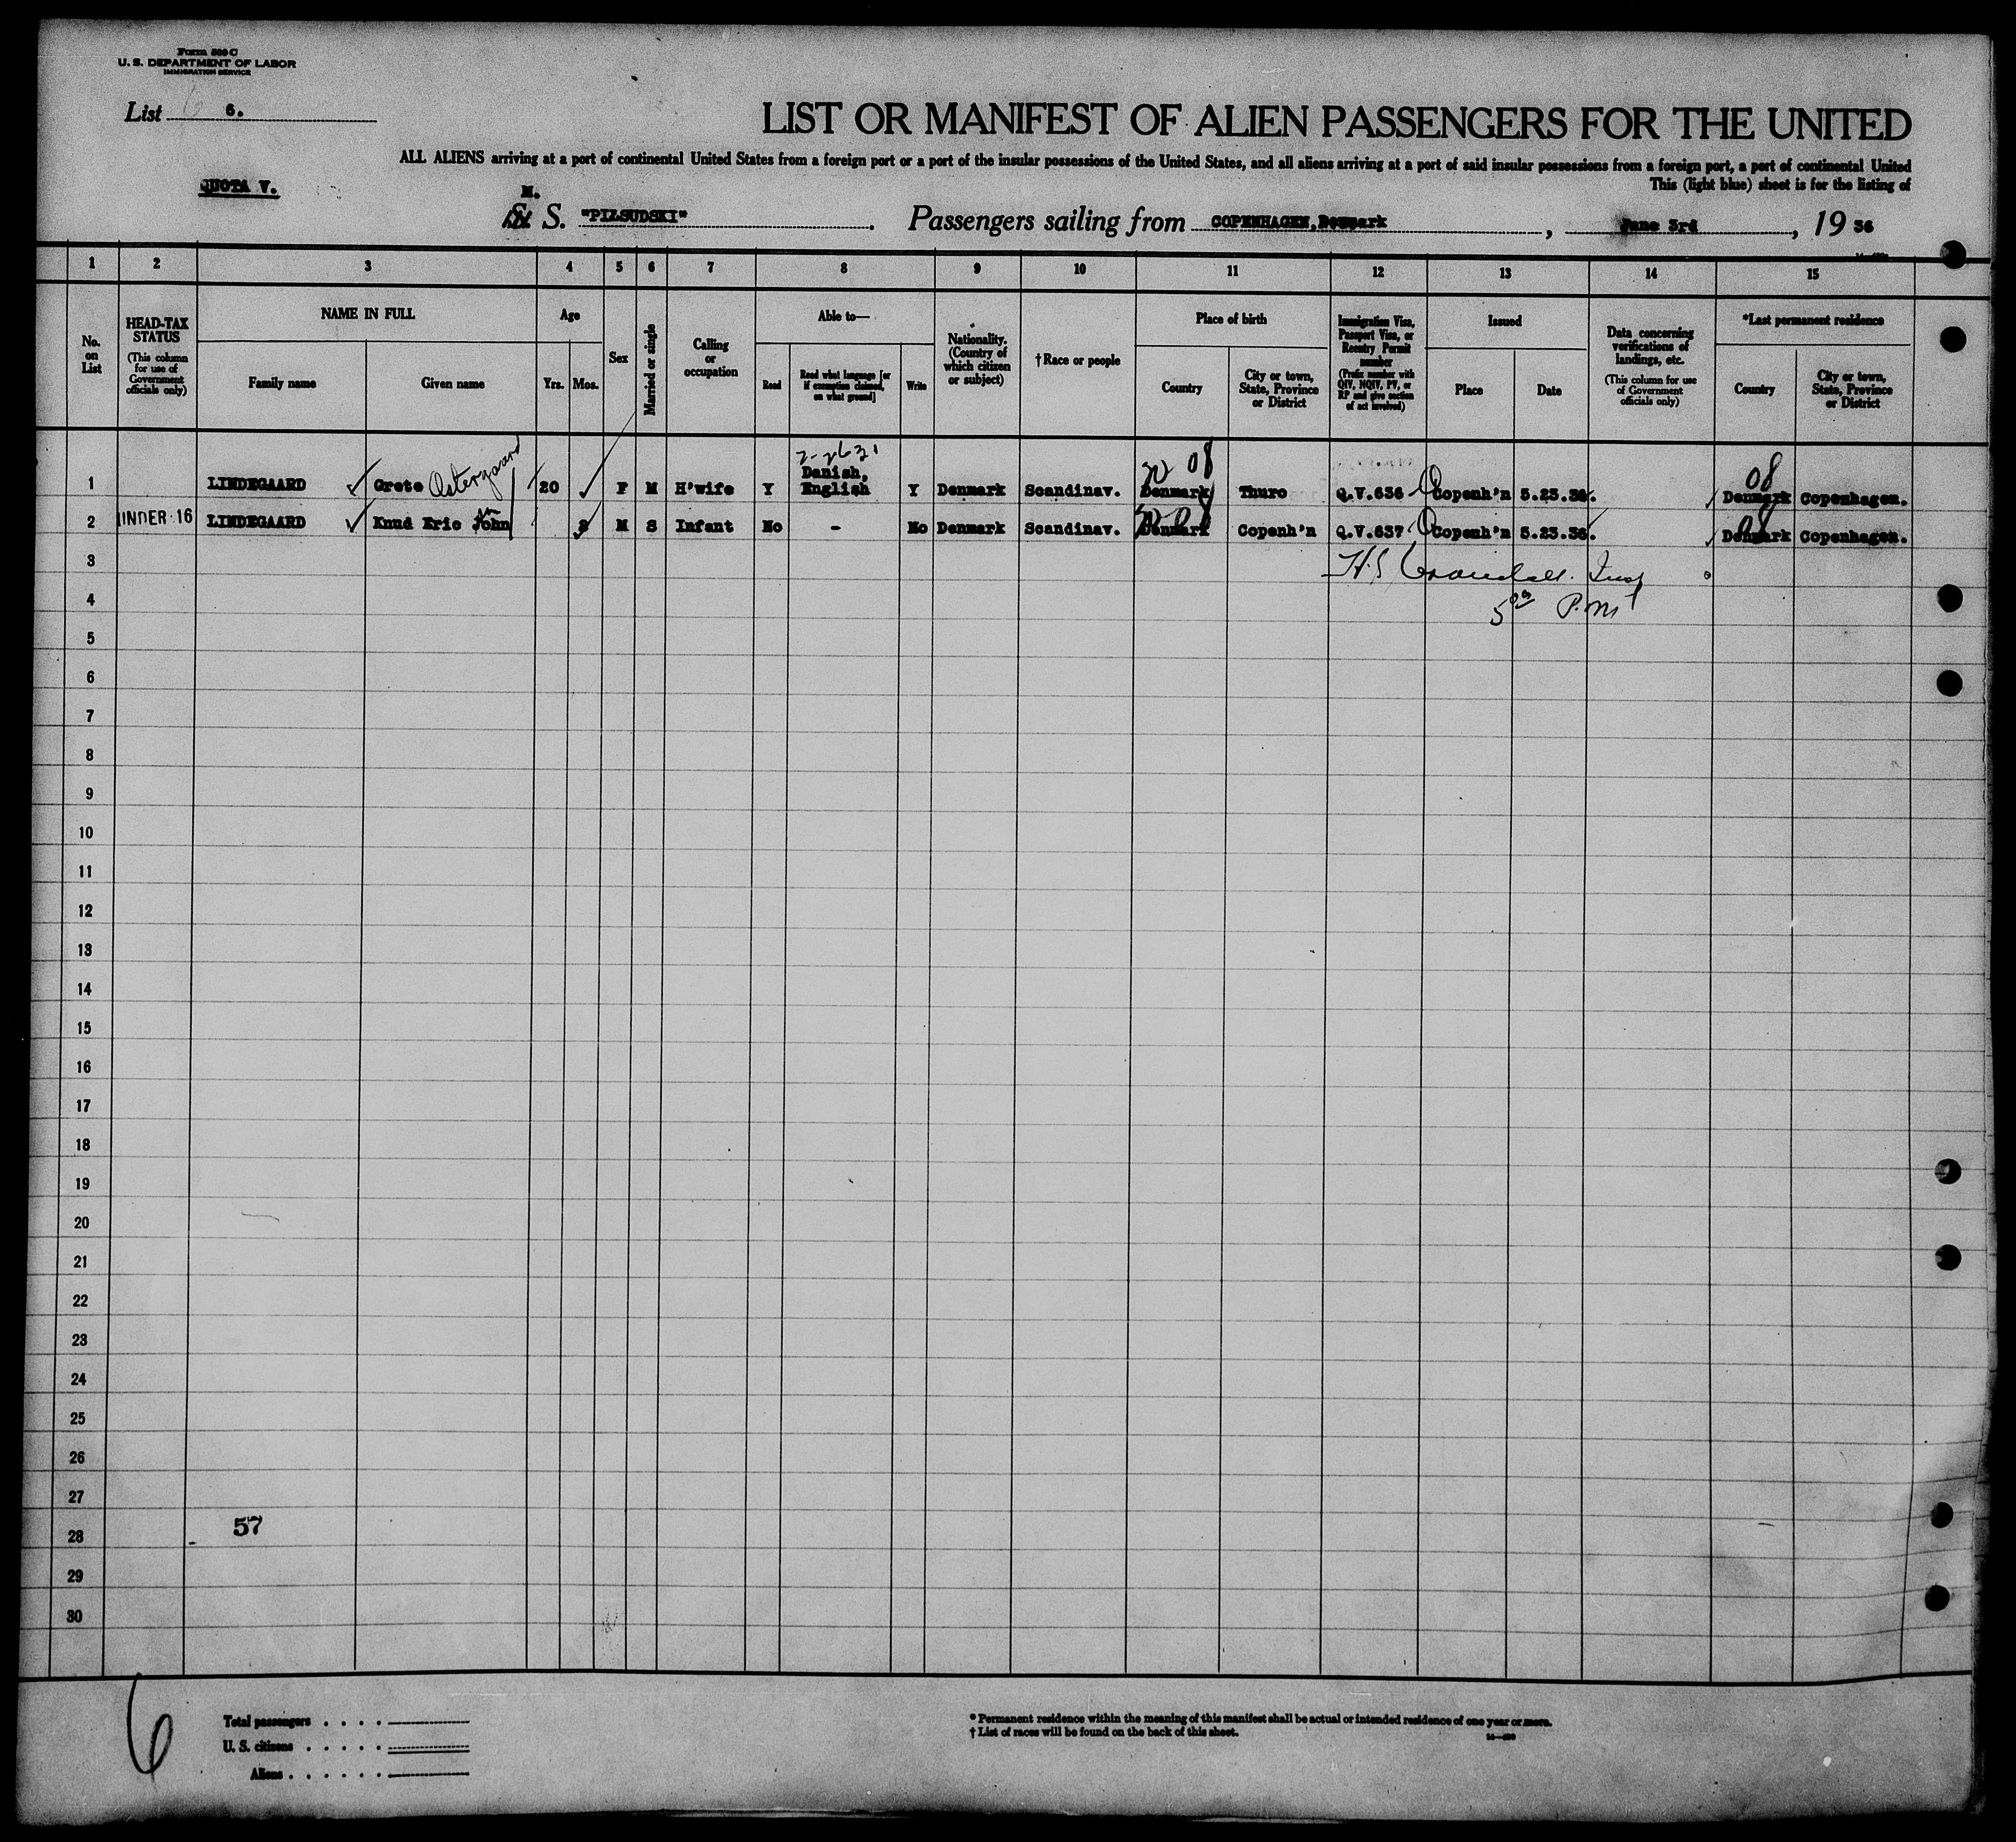 Form 500 C
U. S. DEPARTMENT OF LABOR
IMMIGRATION SERVICE
List 6.
LIST OR MANIFEST OF ALIEN PASSENGERS FOR THE UNITED
ALL ALIENS arriving at a port of continental United States from a foreign port or a port of the insular possessions of the United States, and all aliens arriving at a port of said insular possessions from a foreign port, a port of continental United
This (light blue) sheet is for the listing of
QUOTA V.
M.
S. "PILSUDSKI". Passengers sailing from COPENHAGEN, Denmark, June 3rd, 19 36
1 2 3 4 5 6 7 8 9 10 11 12 13 14 15
No. on List
HEAD-TAX STATUS (This column for use of Government officials only)
NAME IN FULL
Family name Given name
Age
Yrs. Mos.
Sex
Married or single
Calling or occupation
Able to—
Read Read what language [or if exemption claimed, on what ground] Write
Nationality. (Country of which citizen or subject)
†Race or people
Place of birth
Country City or town, State, Province or District
Immigration Visa, Passport Visa, or Reentry Permit number (Prefix number with QIV, NQIV, PV, or RP and give section of act involved)
Issued
Place Date
Data concerning verifications of landings, etc. (This column for use of Government officials only)
*Last permanent residence
Country City or town, State, Province or District
08 08
1 LINDEGAARD Grete Ostergaard 20 F M H'wife Y Danish, English Y Denmark Scandinav. Denmark Thuro Q.V.636 Copenh'n 5.23.36. Denmark Copenhagen.
2 UNDER 16 LINDEGAARD Knud Eric John M S Infant No - No Denmark Scandinav. Denmark Copenh'n Q.V.637 Copenh'n 5.23.36. Denmark Copenhagen.
3 Insp
4 5 P.M
5
6
7
8
9
10
11
12
13
14
15
16
17
18
19
20
21
22
23
24
25
26
27
28 57
29
30
6
Total passengers . . . .
U. S. citizens . . . . .
Aliens . . . . . .
* Permanent residence within the meaning of this manifest shall be actual or intended residence of one year or more.
† List of races will be found on the back of this sheet.